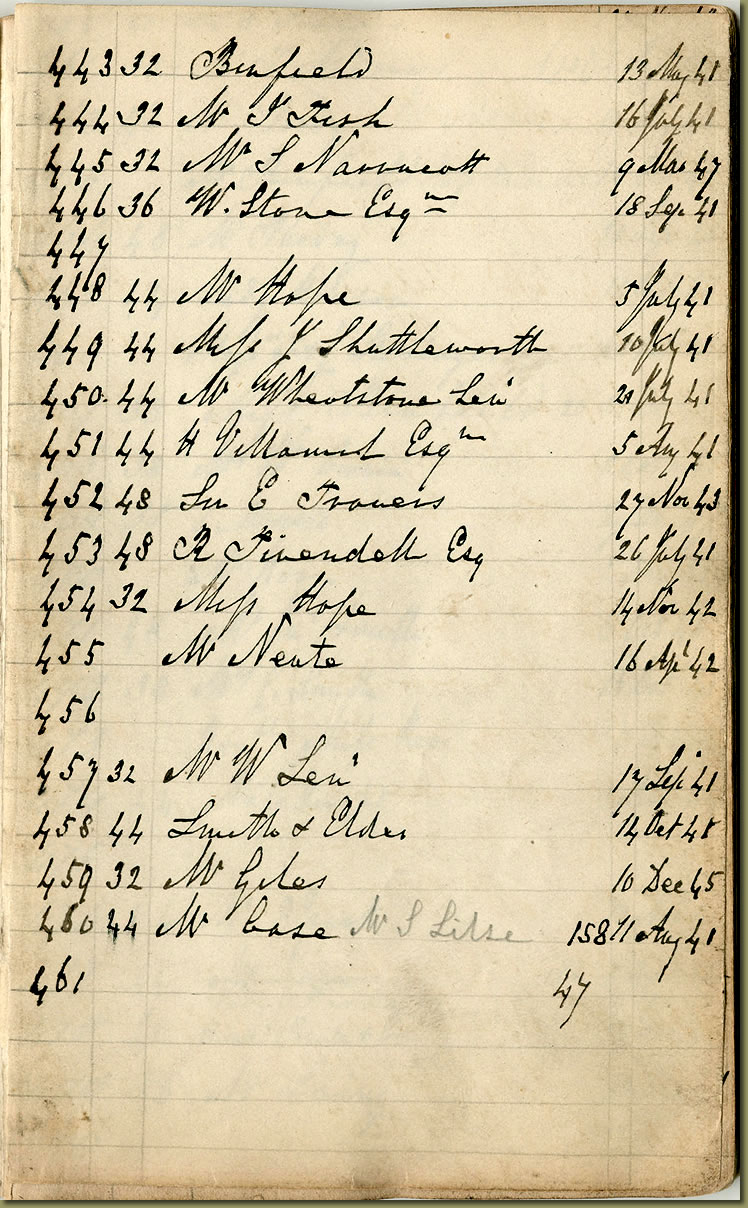 443 32 Binfield 13 May 41
444 32 Mr J Fish 16 July 41
445 32 Mr S Narracott 9 Mar 47
446 36 W. Stone Esqre 18 Sep 41
447
448 44 Mr Hope 5 July 41
449 44 Miss J Shuttleworth 10 July 41
450. 44 Mr Wheatstone Senr 21 July 41
451 44 H Esqre 5 Aug 41
452 48 Sir E Travers 27 Nov 43
453 48 R Tivendell Esq 26 July 41
454 32 Miss Hope 14 Nov 42
455 Mr Neate 16 Apl 42
456
457 32 Mr W Senr 17 Sep 41
458 44 Smith & Elder 14 Oct 41
459 32 Mr Giles 10 Dec 45
460 44 Mr Case Mr S 158 11 Aug 41
461 47